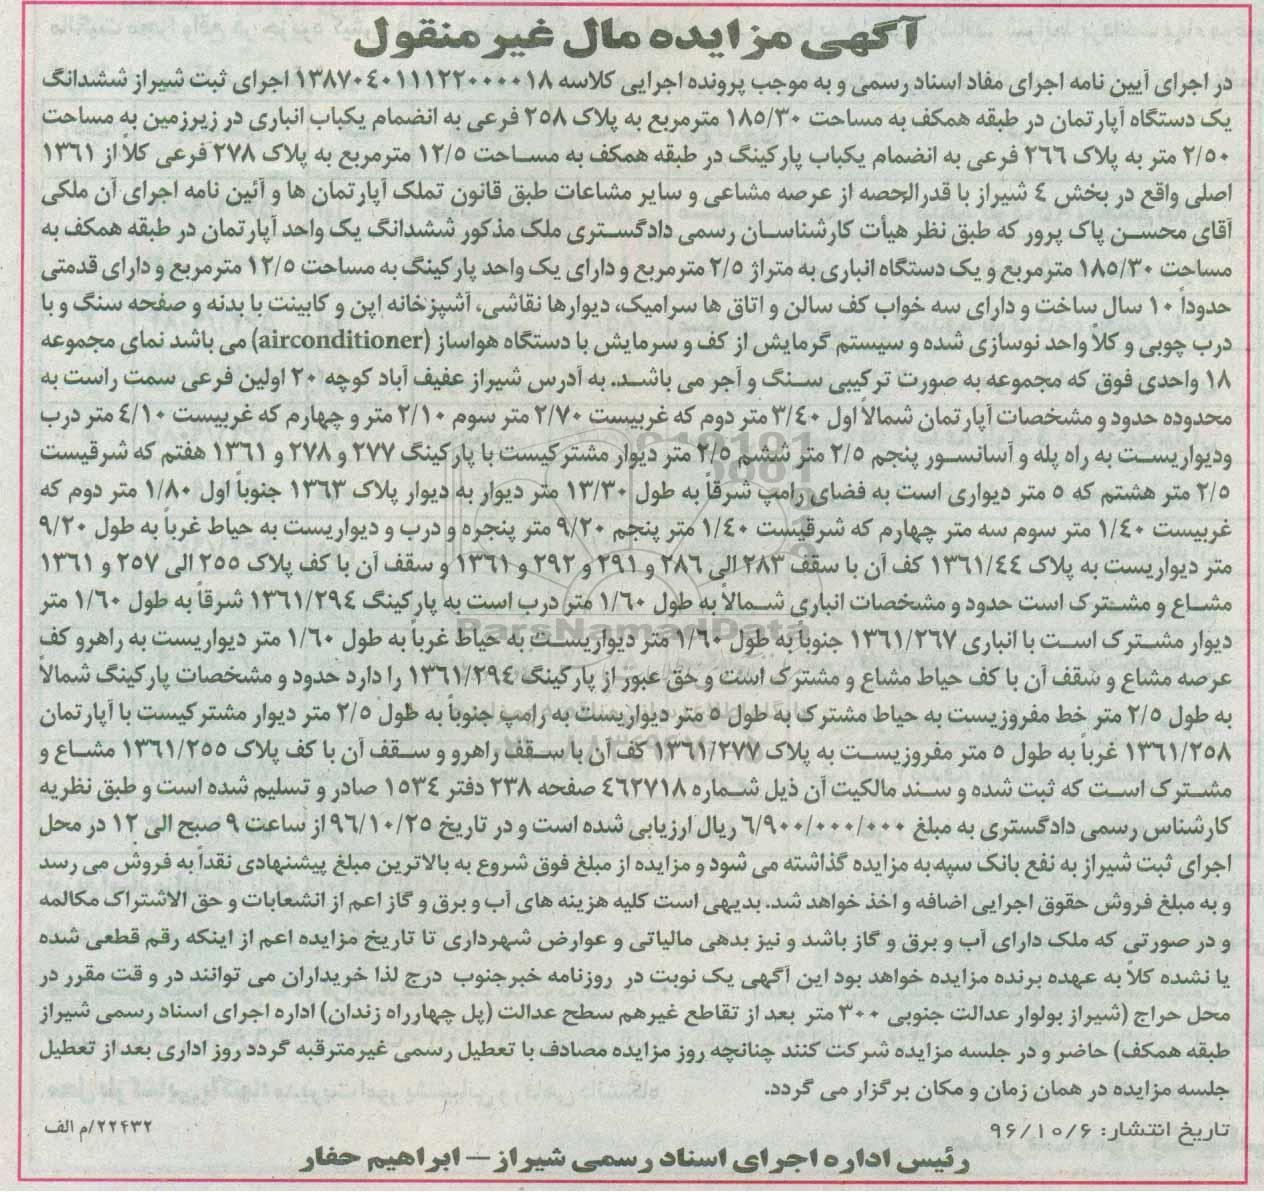 آگهی مزایده مال غیر منقول
در اجرای آیین نامه اجرای مفاد اسناد رسمی و به موجب پرونده اجرایی کلاسه ۱۳۸۷۰۴۰۱۱۱۲۲۰۰۰۰۱۸ اجرای ثبت شیراز ششدانگ
یک دستگاه آپارتمان در طبقه همکف به مساحت ۱۸۵/۳۰ مترمربع به پلاک ۲۵۸ فرعی به انضمام یکباب انباری در زیرزمین به مساحت
۲/۵۰ متر به پلاک ۲۶۶ فرعی به انضمام یکباب پارکینگ در طبقه همکف به مساحت ۱۲/۵ مترمربع به پلاک ۲۷۸ فرعی کلاً از ۱۳۶۱
اصلی واقع در بخش ۴ شیراز با قدرالحصه از عرصه مشاعی و سایر مشاعات طبق قانون تملک آپارتمان ها و آئین نامه اجرای آن ملکی
آقای محسن پاک پرور که طبق نظر هیأت کارشناسان رسمی دادگستری ملک مذکور ششدانگ یک واحد آپارتمان در طبقه همکف به
مساحت ۱۸۵/۳۰ مترمربع و یک دستگاه انباری به متراژ ۲/۵ مترمربع و دارای یک واحد پارکینگ به مساحت ۱۲/۵ مترمربع و دارای قدمتی
حدوداً ۱۰ سال ساخت و دارای سه خواب کف سالن و اتاق ها سرامیک، دیوارها نقاشی، آشپزخانه اپن و کابینت با بدنه و صفحه سنگ و با
درب چوبی و کلاً واحد نوسازی شده و سیستم گرمایش از کف و سرمایش با دستگاه هواساز (airconditioner) می باشد نمای مجموعه
۱۸ واحدی فوق که مجموعه به صورت ترکیبی سنگ و آجر می باشد. به آدرس شیراز عفیف آباد کوچه ۲۰ اولین فرعی سمت راست به
محدوده حدود و مشخصات آپارتمان شمالاً اول ۳/۴۰ متر دوم که غربیست ۲/۷۰ متر سوم ۲/۱۰ متر و چهارم که غربیست ۴/۱۰ متر درب
ودیواریست به راه پله و آسانسور پنجم ۲/۵ متر ششم ۲/۵ متر دیوار مشترکیست با پارکینگ ۲۷۷ و ۲۷۸ و ۱۳۶۱ هفتم که شرقیست
۲/۵ متر هشتم که ۵ متر دیواری است به فضای رامپ شرقاً به طول ۱۳/۳۰ متر دیوار به دیوار پلاک ۱۳۶۳ جنوباً اول ۱/۸۰ متر دوم که
غربیست ۱/۴۰ متر سوم سه متر چهارم که شرقیست ۱/۴۰ متر پنجم ۹/۲۰ متر پنجره و درب و دیواریست به حیاط غرباً به طول ۹/۲۰
متر دیواریست به پلاک ۱۳۶۱/۴۴ کف آن با سقف ۲۸۳ الی ۲۸۶ و ۲۹۱ و ۲۹۲ و ۱۳۶۱ و سقف آن با کف پلاک ۲۵۵ الی ۲۵۷ و ۱۳۶۱
مشاع و مشترک است حدود و مشخصات انباری شمالاً به طول ۱/۶۰ متر درب است به پارکینگ ۱۳۶۱/۲۹۴ شرقاً به طول ۱/۶۰ متر
دیوار مشترک است با انباری ۱۳۶۱/۲۶۷ جنوباً به طول ۱/۶۰ متر دیواریست به حیاط غرباً به طول ۱/۶۰ متر دیواریست به راهرو کف
عرصه مشاع و سقف آن با کف حیاط مشاع و مشترک است و حق عبور از پارکینگ ۱۳۶۱/۲۹۴ را دارد حدود و مشخصات پارکینگ شمالاً
به طول ۲/۵ متر خط مفروزیست به حیاط مشترک به طول ۵ متر دیواریست به رامپ جنوباً به طول ۲/۵ متر دیوار مشترکیست با آپارتمان
۱۳۶۱/۲۵۸ غرباً به طول ۵ متر مفروزیست به پلاک ۱۳۶۱/۲۷۷ کف آن با سقف راهرو و سقف آن با کف پلاک ۱۳۶۱/۲۵۵ مشاع و
مشترک است که ثبت شده و سند مالکیت آن ذیل شماره ۴۶۲۷۱۸ صفحه ۲۳۸ دفتر ۱۵۳۴ صادر و تسلیم شده است و طبق نظریه
کارشناس رسمی دادگستری به مبلغ ۶/۹۰۰/۰۰۰/۰۰۰ ریال ارزیابی شده است و در تاریخ ۹۶/۱۰/۲۵ از ساعت ۹ صبح الی ۱۲ در محل
اجرای ثبت شیراز به نفع بانک سپه به مزایده گذاشته می شود و مزایده از مبلغ فوق شروع به بالاترین مبلغ پیشنهادی نقداً به فروش می رسد
و به مبلغ فروش حقوق اجرایی اضافه و اخذ خواهد شد. بدیهی است کلیه هزینه های آب و برق و گاز اعم از انشعابات و حق الاشتراک مکالمه
و در صورتی که ملک دارای آب و برق و گاز باشد و نیز بدهی مالیاتی و عوارض شهرداری تا تاریخ مزایده اعم از اینکه رقم قطعی شده
یا نشده کلاً به عهده برنده مزایده خواهد بود این آگهی یک نوبت در روزنامه خبرجنوب درج لذا خریداران می توانند در و قت مقرر در
محل حراج (شیراز بولوار عدالت جنوبی ۳۰۰ متر بعد از تقاطع غیرهم سطح عدالت (پل چهارراه زندان) اداره اجرای اسناد رسمی شیراز
طبقه همکف) حاضر و در جلسه مزایده شرکت کنند چنانچه روز مزایده مصادف با تعطیل رسمی غیرمترقبه گردد روز اداری بعد از تعطیل
جلسه مزایده در همان زمان و مکان برگزار می گردد.
تاریخ انتشار: ۹۶/۱۰/۶
۲۲۴۳۲/م الف
رئیس اداره اجرای اسناد رسمی شیراز – ابراهیم حفار
ParsNamadData